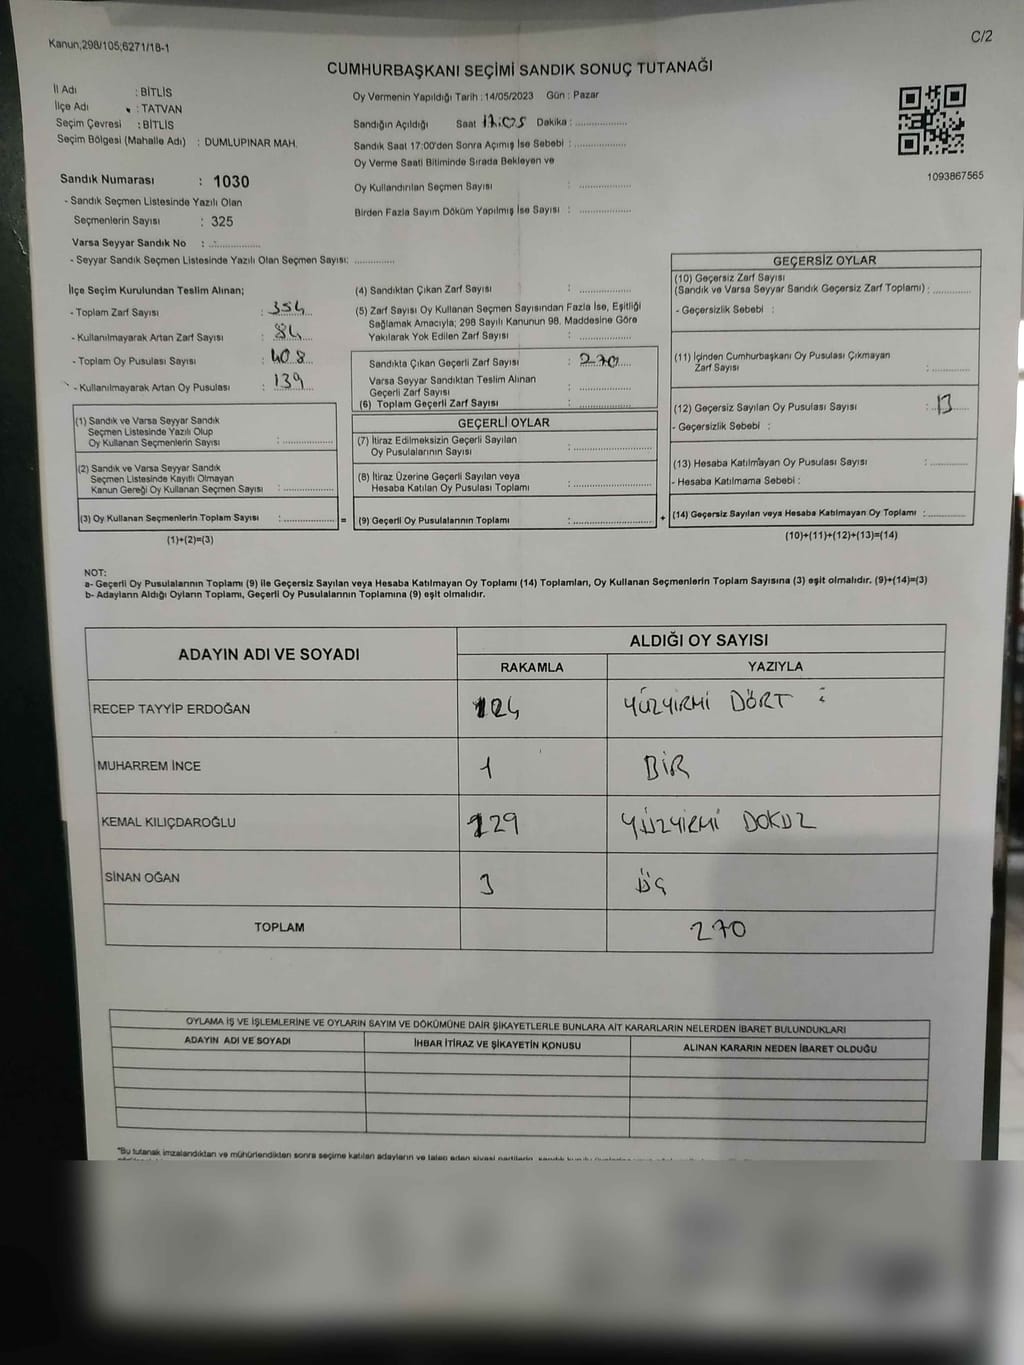 Kanun;298/105;6271/18-1
C/2
CUMHURBAŞKANI SEÇİMİ SANDIK SONUÇ TUTANAĞI
İl Adı : BİTLİS
İlçe Adı : TATVAN
Seçim Çevresi : BİTLİS
Seçim Bölgesi (Mahalle Adı) : DUMLUPINAR MAH.
Oy Vermenin Yapıldığı Tarih : 14/05/2023 Gün : Pazar
Sandığın Açıldığı Saat 17:05 Dakika : ..............
Sandık Saat 17:00'den Sonra Açımış İse Sebebi : ..............
Oy Verme Saati Bitiminde Sırada Bekleyen ve
Oy Kullandırılan Seçmen Sayısı : ..............
Birden Fazla Sayım Döküm Yapılmış İse Sayısı : ..............
1093867565
Sandık Numarası : 1030
- Sandık Seçmen Listesinde Yazılı Olan
Seçmenlerin Sayısı : 325
Varsa Seyyar Sandık No : ..............
- Seyyar Sandık Seçmen Listesinde Yazılı Olan Seçmen Sayısı: ..............
İlçe Seçim Kurulundan Teslim Alınan;
- Toplam Zarf Sayısı : 354
- Kullanılmayarak Artan Zarf Sayısı : 84
- Toplam Oy Pusulası Sayısı : 408
- Kullanılmayarak Artan Oy Pusulası : 139
(1) Sandık ve Varsa Seyyar Sandık
Seçmen Listesinde Yazılı Olup
Oy Kullanan Seçmenlerin Sayısı : ..............
(2) Sandık ve Varsa Seyyar Sandık
Seçmen Listesinde Kayıtlı Olmayan
Kanun Gereği Oy Kullanan Seçmen Sayısı : ..............
(3) Oy Kullanan Seçmenlerin Toplam Sayısı : .............. =
(1)+(2)=(3)
(4) Sandıktan Çıkan Zarf Sayısı : ..............
(5) Zarf Sayısı Oy Kullanan Seçmen Sayısından Fazla İse, Eşitliği
Sağlamak Amacıyla; 298 Sayılı Kanunun 98. Maddesine Göre
Yakılarak Yok Edilen Zarf Sayısı : ..............
Sandıkta Çıkan Geçerli Zarf Sayısı : 270
Varsa Seyyar Sandıktan Teslim Alınan
Geçerli Zarf Sayısı : ..............
(6) Toplam Geçerli Zarf Sayısı : ..............
GEÇERLİ OYLAR
(7) İtiraz Edilmeksizin Geçerli Sayılan
Oy Pusulalarının Sayısı : ..............
(8) İtiraz Üzerine Geçerli Sayılan veya
Hesaba Katılan Oy Pusulası Toplamı : ..............
(9) Geçerli Oy Pusulalarının Toplamı : .............. +
GEÇERSİZ OYLAR
(10) Geçersiz Zarf Sayısı
(Sandık ve Varsa Seyyar Sandık Geçersiz Zarf Toplamı) : ..............
- Geçersizlik Sebebi :
(11) İçinden Cumhurbaşkanı Oy Pusulası Çıkmayan
Zarf Sayısı : ..............
(12) Geçersiz Sayılan Oy Pusulası Sayısı : 13
- Geçersizlik Sebebi :
(13) Hesaba Katılmayan Oy Pusulası Sayısı : ..............
- Hesaba Katılmama Sebebi :
(14) Geçersiz Sayılan veya Hesaba Katılmayan Oy Toplamı : ..............
(10)+(11)+(12)+(13)=(14)
NOT:
a- Geçerli Oy Pusulalarının Toplamı (9) ile Geçersiz Sayılan veya Hesaba Katılmayan Oy Toplamı (14) Toplamları, Oy Kullanan Seçmenlerin Toplam Sayısına (3) eşit olmalıdır. (9)+(14)=(3)
b- Adayların Aldığı Oyların Toplamı, Geçerli Oy Pusulalarının Toplamına (9) eşit olmalıdır.
ADAYIN ADI VE SOYADI ALDIĞI OY SAYISI
RAKAMLA YAZIYLA
RECEP TAYYİP ERDOĞAN 124 YÜZYİRMİ DÖRT
MUHARREM İNCE 1 BİR
KEMAL KILIÇDAROĞLU 129 YÜZYİRMİ DOKUZ
SİNAN OĞAN 3 ÜÇ
TOPLAM 270
OYLAMA İŞ VE İŞLEMLERİNE VE OYLARIN SAYIM VE DÖKÜMÜNE DAİR ŞİKAYETLERLE BUNLARA AİT KARARLARIN NELERDEN İBARET BULUNDUKLARI
ADAYIN ADI VE SOYADI İHBAR İTİRAZ VE ŞİKAYETİN KONUSU ALINAN KARARIN NEDEN İBARET OLDUĞU
*Bu tutanak imzalandıktan ve mühürlendikten sonra seçime katılan adayların ve talep eden siyasi partilerin,